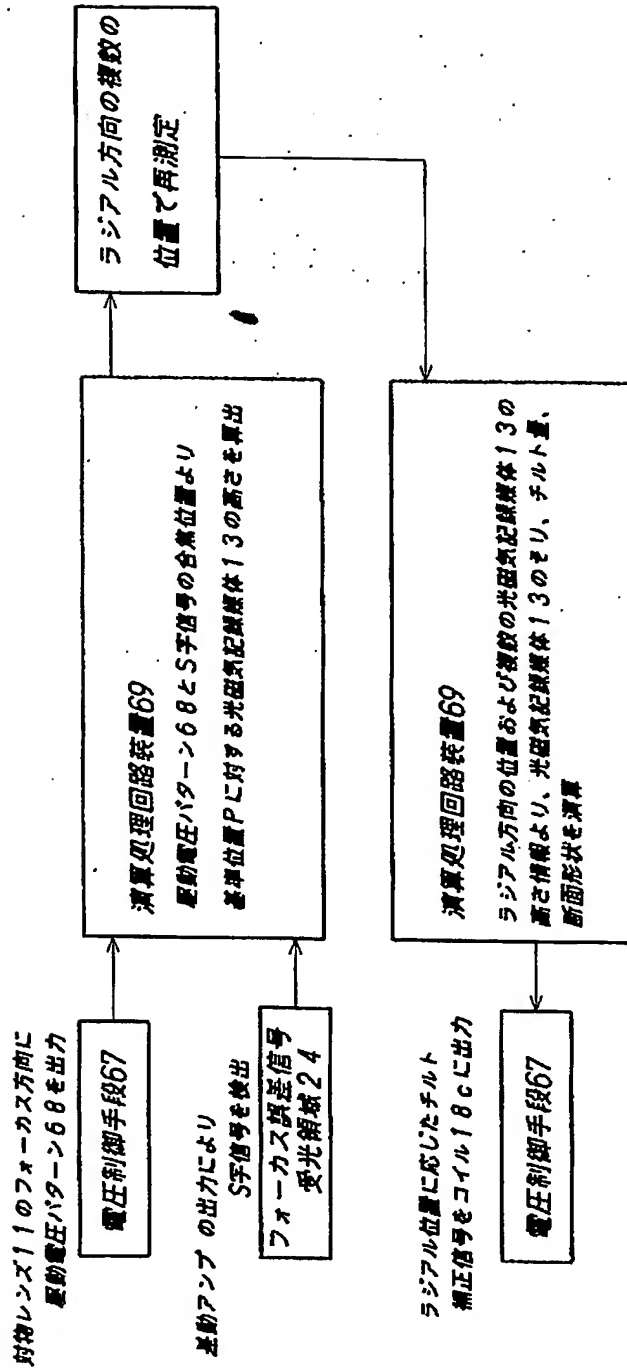 対物レンズ11のフォーカス方向に
駆動電圧パターン68を出力
電圧制御手段67
差動アンプの出力により
S字信号を検出
フォーカス誤差信号
受光領域24
演算処理回路装置69
駆動電圧パターン68とS字信号の合焦位置より
基準位置Pに対する光磁気記録媒体13の高さを算出
ラジアル方向の複数の
位置で再測定
演算処理回路装置69
ラジアル方向の位置および複数の光磁気記録媒体13の
高さ情報より、光磁気記録媒体13のそり、チルト量、
断面形状を演算
ラジアル位置に応じたチルト
補正信号をコイル18cに出力
電圧制御手段67